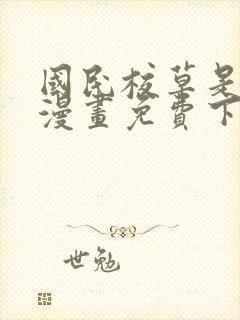 國民校草是
漫畫免費下
世勉